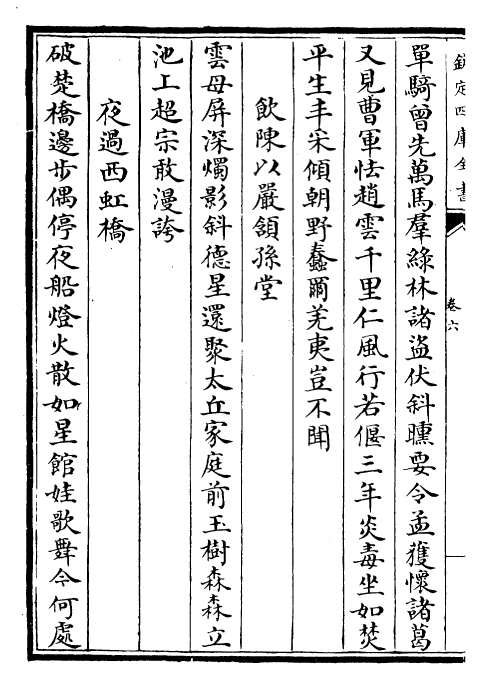 欽定四庫全書
卷六
單騎曾先萬馬羣綠林諸盜伏斜曛要令孟獲懷諸葛
又見曹軍怯趙雲千里仁風行若偃三年炎毒坐如焚
平生丰采傾朝野蠢爾羌夷豈不聞
飲陳以嚴領孫堂
雲母屏深燭影斜德星還聚太丘家庭前玉樹森森立
池上超宗敢漫誇
夜過西虹橋
破楚橋邊步偶停夜船燈火散如星館娃歌舞今何處